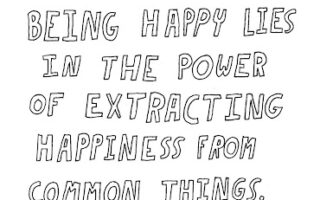 BEING HAPPY LIES
IN THE POWER
OF EXTRACTING
HAPPINESS FROM
COMMON THINGS.